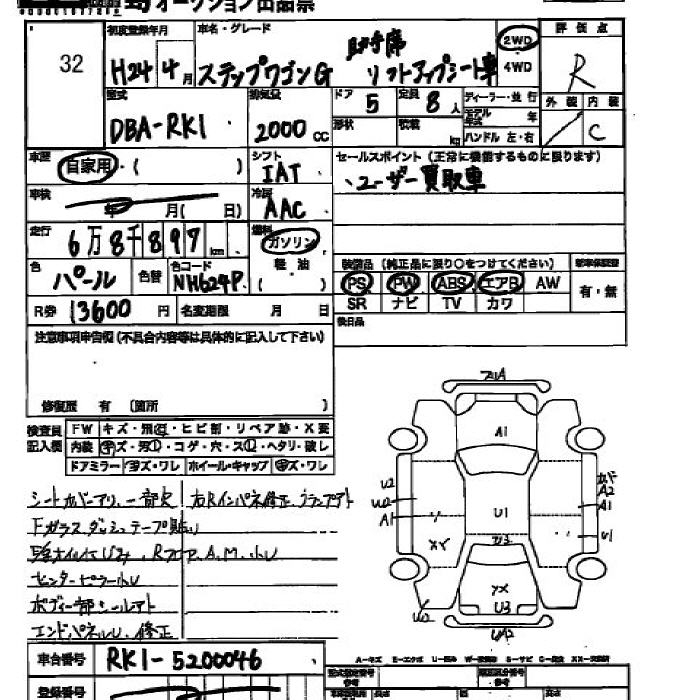 オークション出品票
32
初度登録年月
H24年 4月
車名・グレード
ステップワゴンG 助手席リフトアップシート車
2WD
4WD
評価点
R
型式
DBA-RK1
排気量
2000 cc
ドア 5
定員 8人
形状
積載 kg
ディーラー・並行
モデル年式 年
ハンドル 左・右
外装 内装
C
車歴
自家用・( )
シフト
IAT
セールスポイント (正常に機能するものに限ります)
、ユーザー買取車
車検
年 月( 日)
冷房
AAC
走行
6万8千897 km
燃料
ガソリン
軽・油
( )
色
パール
色替
色コード
NH624P
装備品 (純正品に限り○をつけてください)
PS PW ABS エアB AW
SR ナビ TV カワ
新車保証書
有・無
R券 13600円
名変期限 月 日
後日品
注意事項申告欄(不具合内容等は具体的に記入して下さい)
修復歴 有 (箇所 )
検査員記入欄
FW キズ・飛石・ヒビ割・リペア跡・X要
内装 キズ・汚レ・コゲ・穴・スレ・ヘタリ・破レ
ドアミラー キズ・ワレ ホイール・キャップ キズ・ワレ
シートカバーアリ、一部欠
Fガラスダッシュテープ貼り
センターピラー小U
ボディ一部シールアト
エンドパネルU、修正
右Rインパネ修正
A1
U2
U2
A1
A2
A1
U1
U1
U3
XY
YX
U3
U2
UA2
車台番号 RK1-5200046
登録番号
A-キズ E-エクボ U-凹み
型式指定番号
類別区分番号
長さ
高さ